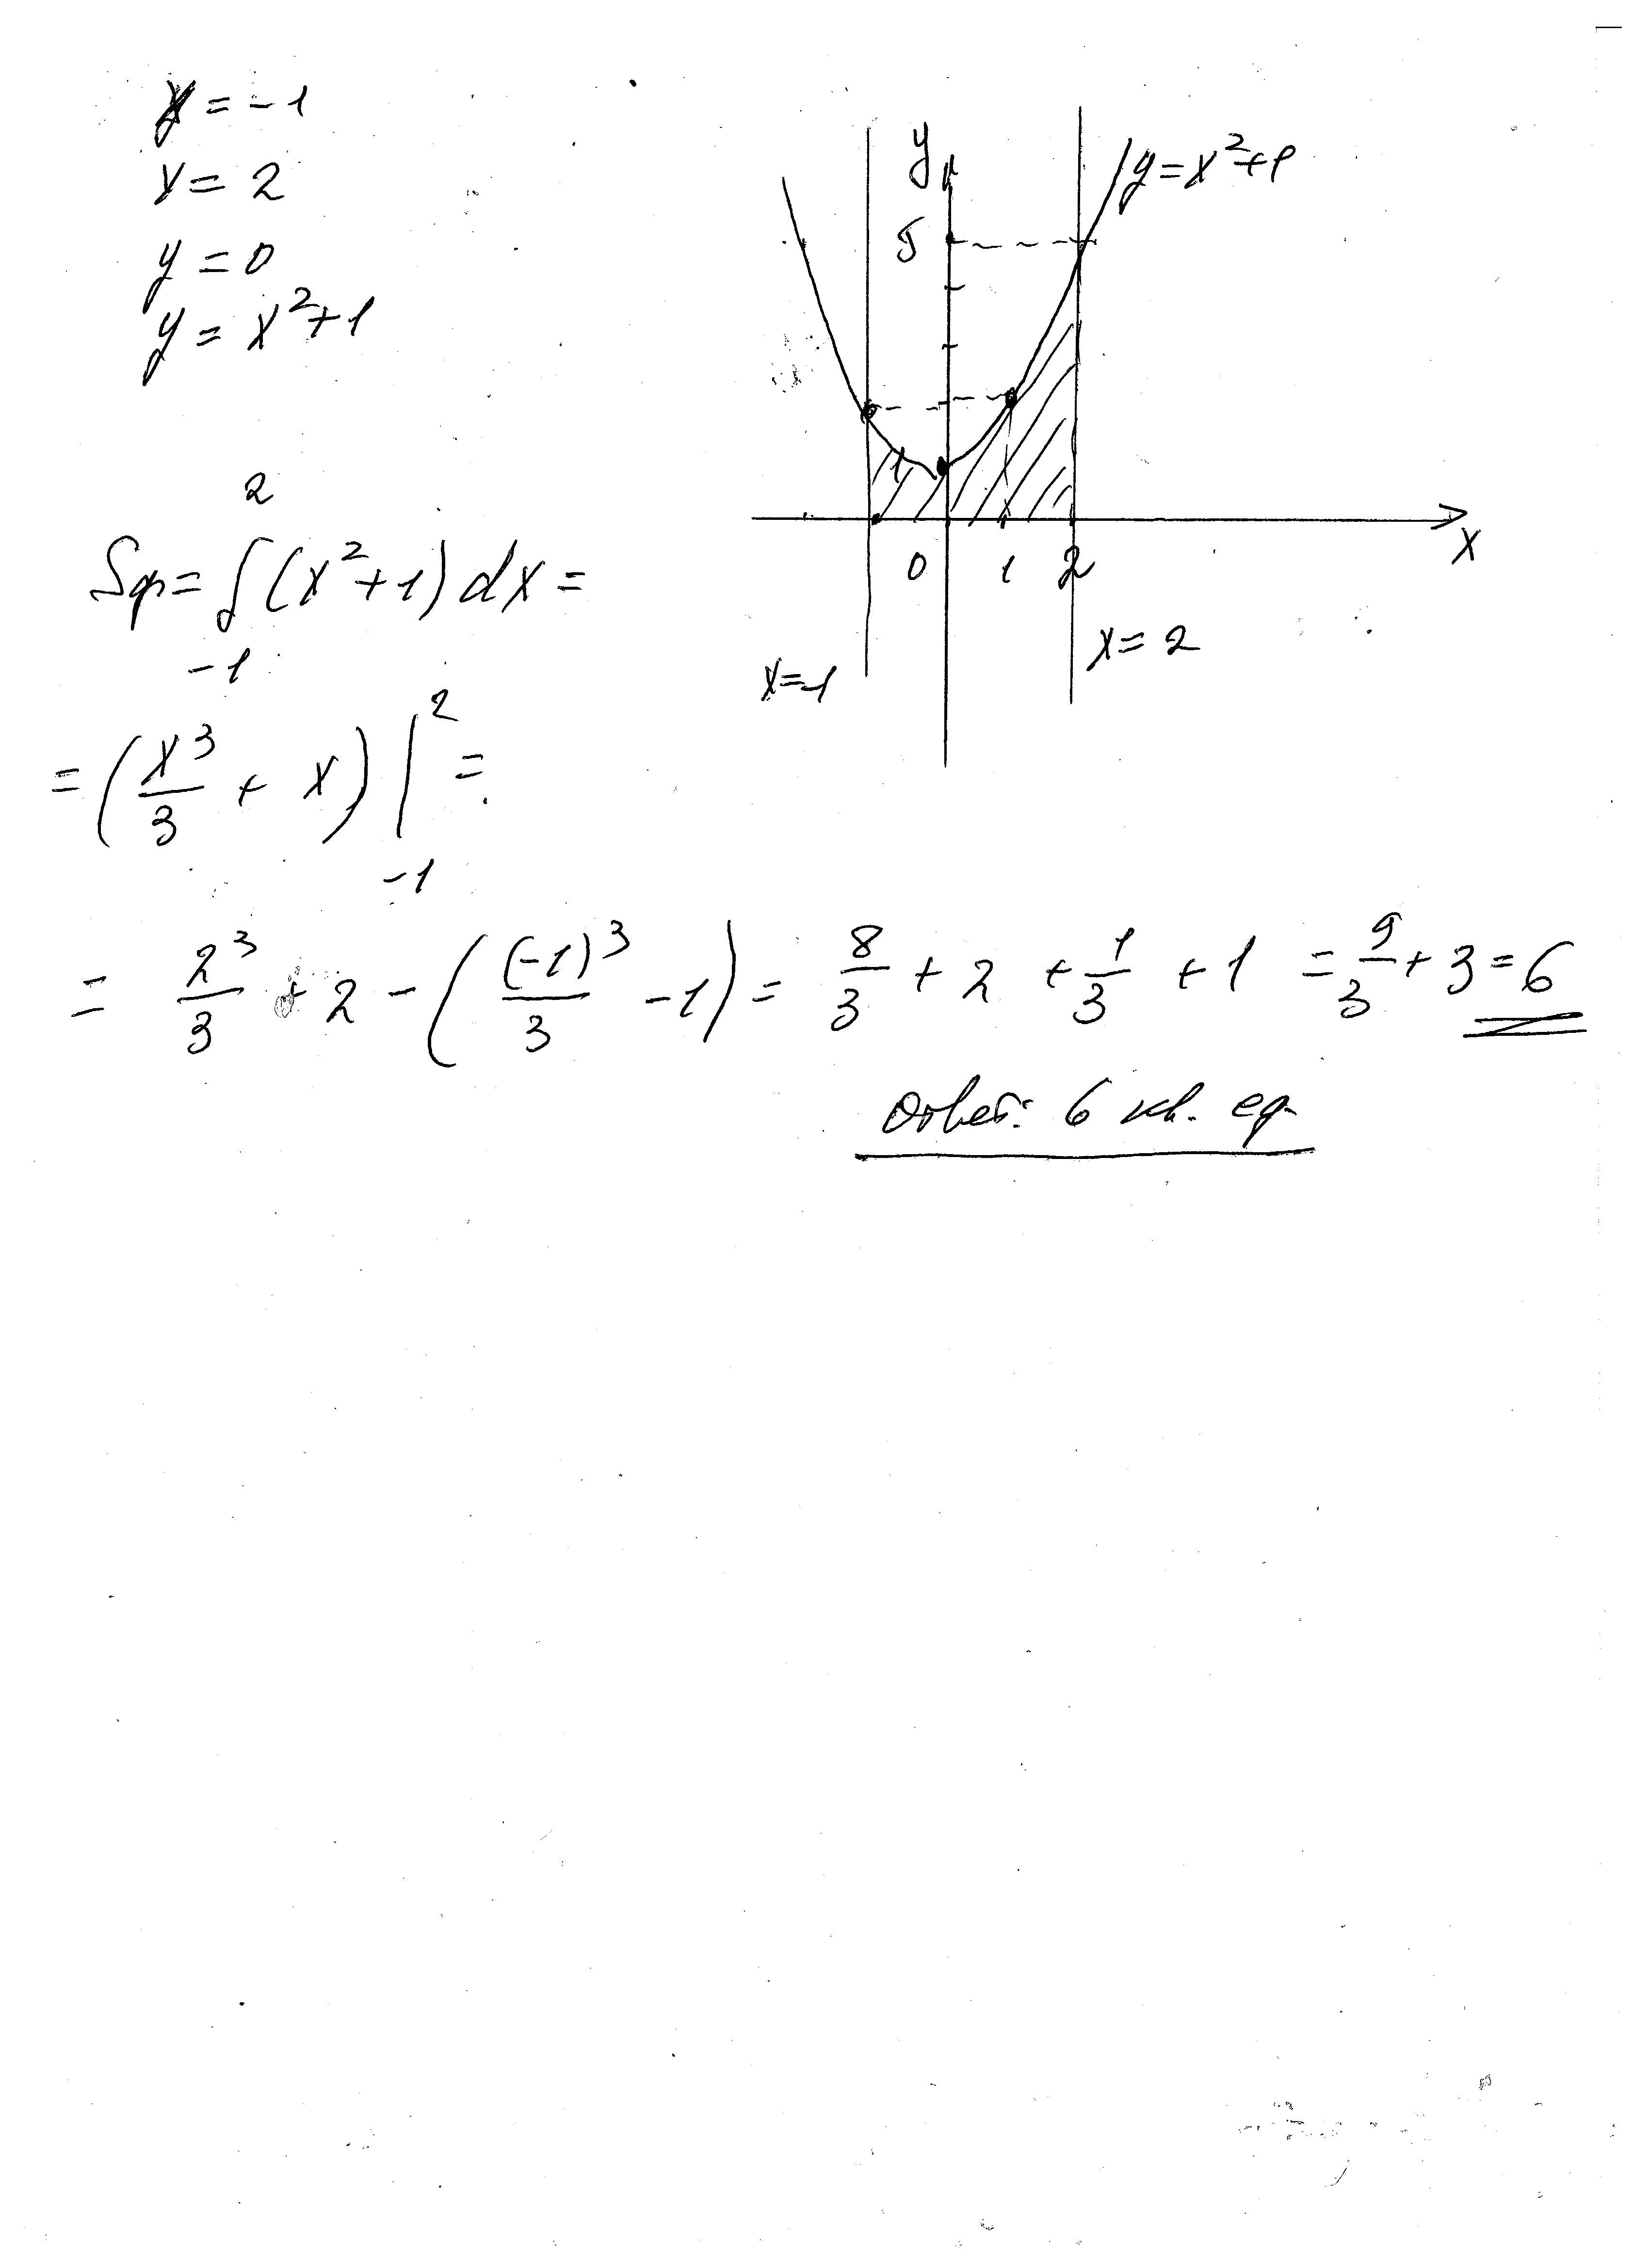 x = -1
x = 2
y = 0
y = x²+1
y
y = x²+1
5
1
0 1 2
x
x = -1
x = 2
Sф = ∫₋₁² (x²+1) dx =
= (x³/3 + x) |₋₁² =
= 2³/3 + 2 - ((-1)³/3 - 1) = 8/3 + 2 + 1/3 + 1 = 9/3 + 3 = 6
Ответ: 6 кв. ед.